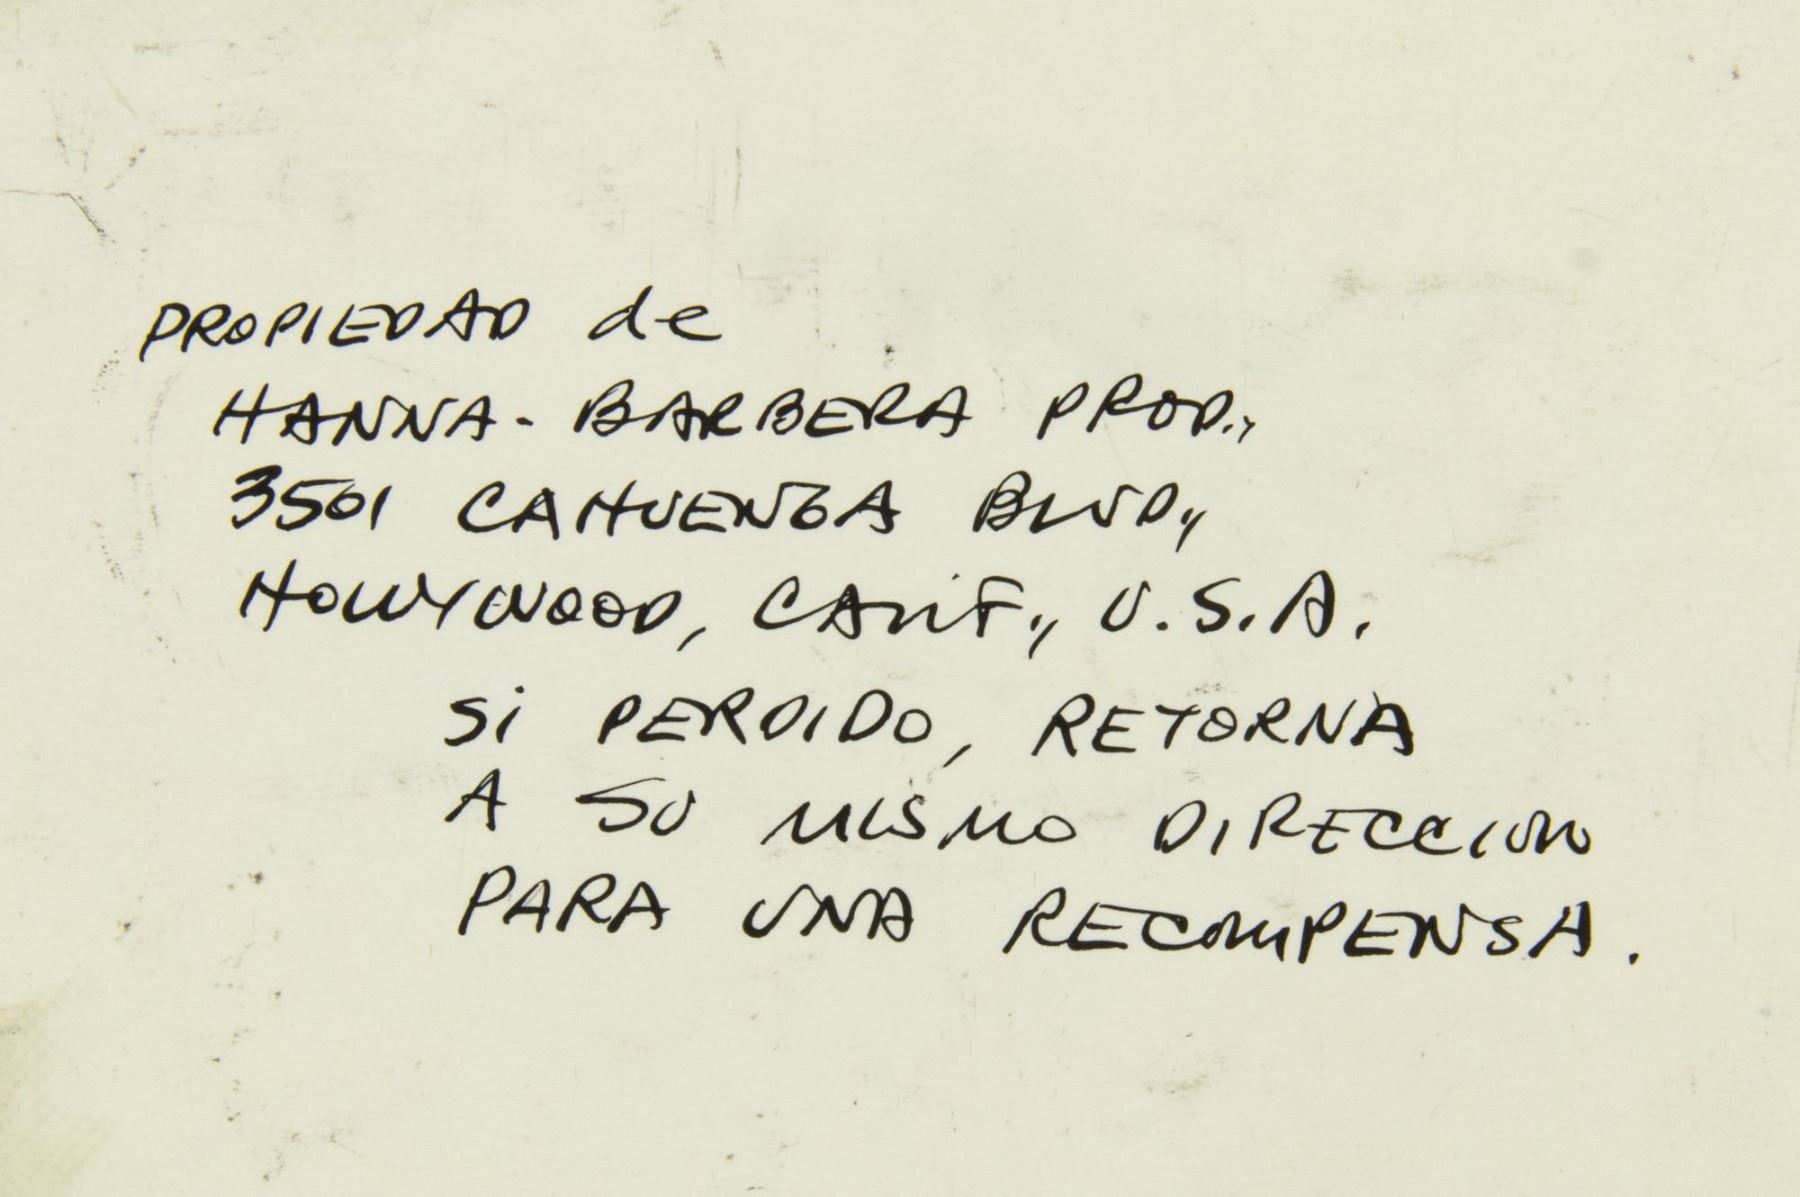 PROPIEDAD de
HANNA-BARBERA PROD.,
3501 CAHUENGA BLVD.,
HOLLYWOOD, CALIF., U.S.A.
Si PERDIDO, RETORNA
A SU MISMO DIRECCION
PARA UNA RECOMPENSA.